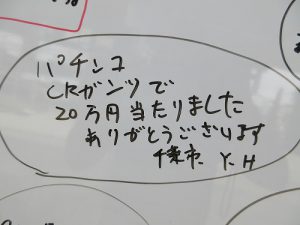 パチンコ
CRガンツで
20万円当たりました
ありがとうございます
千葉市 Y.H